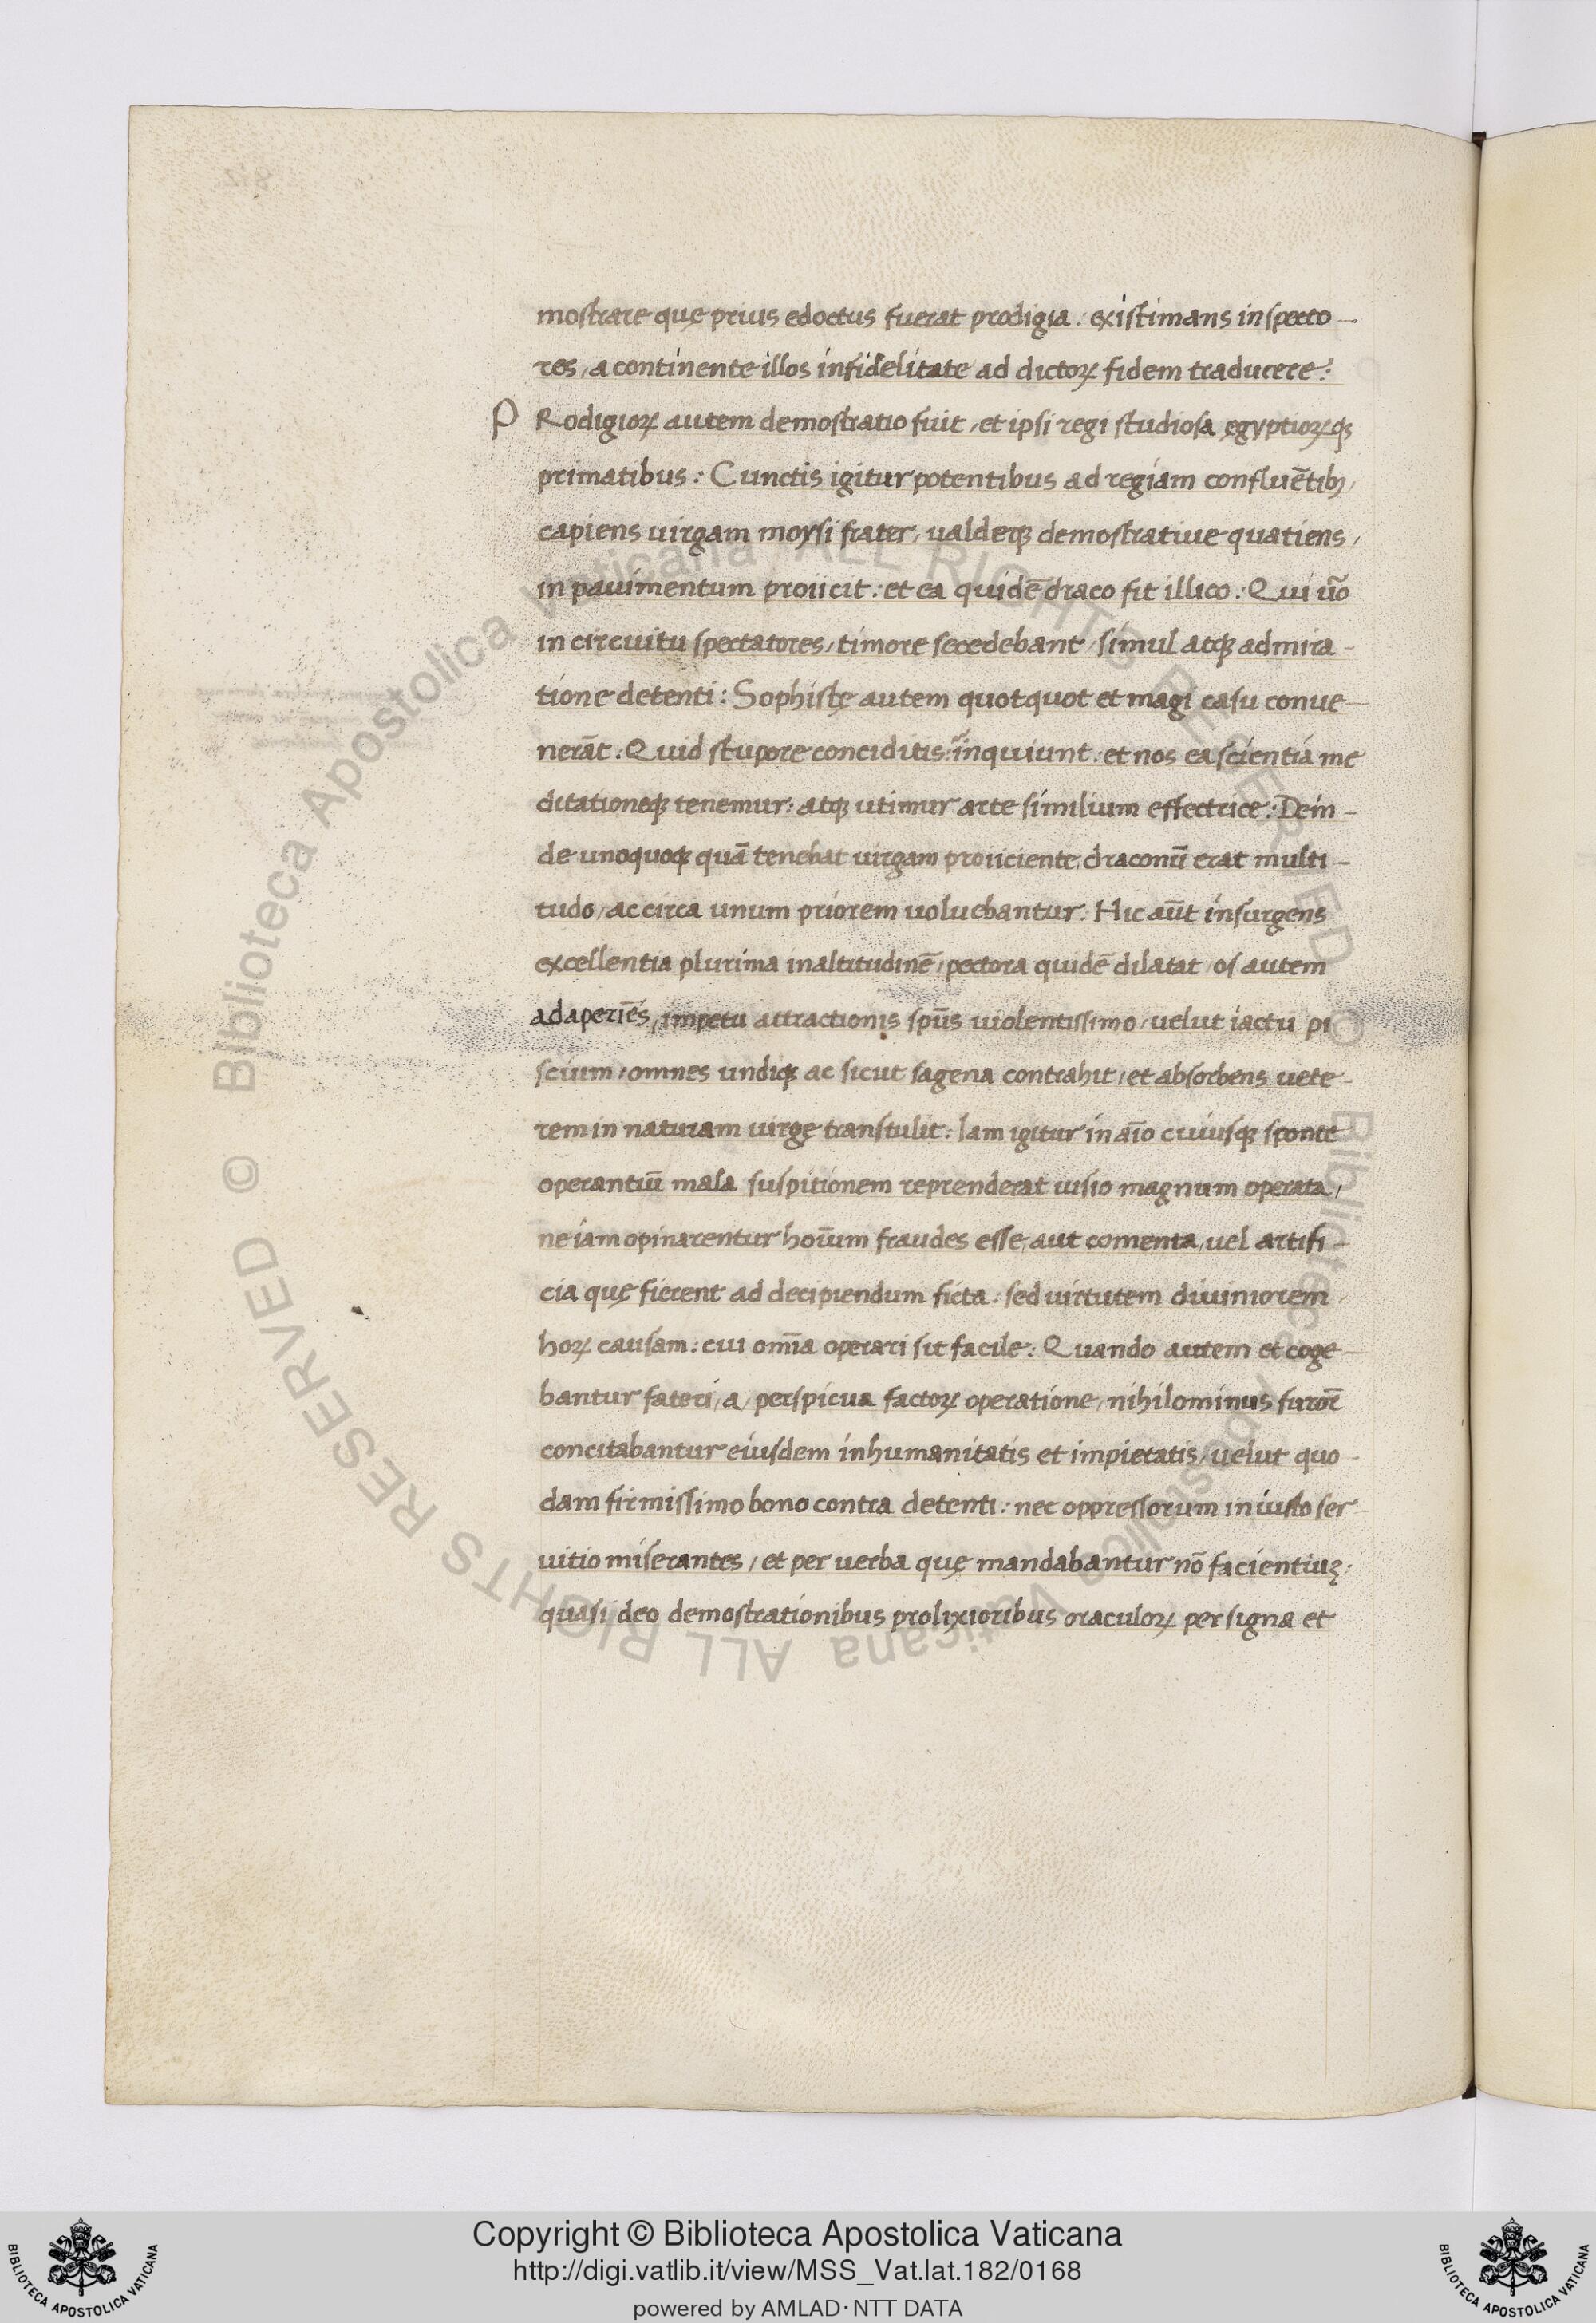 mostrare quę prius edoctus fuerat prodigia: existimans inspecto-
res, a continente illos infidelitate ad dictoꝝ fidem traducere:
PRodigioꝝ autem demostratio fuit, et ipsi regi studiosa ęgyptioꝝqꝫ
primatibus: Cunctis igitur potentibus ad regiam confluẽtibꝫ,
capiens uirgam moysi frater, ualdeqꝫ demostratiue quatiens,
in pauimentum proiicit: et ea quidẽ draco fit illico: Qui ũo
in circuitu spectatores, timore secedebant, simul atqꝫ admira-
tione detenti: Sophistę autem quotquot et magi casu conue-
nerãt: Quid stupore conciditis: inquiunt: et nos ea scientia me
ditationeqꝫ tenemur: atqꝫ utimur arte similium effectrice: Dein-
de unoquoqꝫ quã tenebat uirgam proiiciente, draconũ erat multi-
tudo, ac circa unum priorem uoluebantur: Hic aũt insurgens
excellentia plurima in altitudinẽ, pectora quidẽ dilatat, os autem
adaperiẽs, impetu attractionis spũs uiolentissimo, uelut iactu pi
scium, omnes undiqꝫ ac sicut sagena contrahit, et absorbens uete-
rem in naturam uirgę transtulit: Iam igitur in aĩo cuiusqꝫ sponte
operantiũ mala suspitionem reprenderat uisio magnum operata,
ne iam opinarentur hoĩum fraudes esse, aut comenta, uel artifi-
cia quę fierent ad decipiendum ficta: sed uirtutem diuiniorem,
hoꝝ causam: cui omĩa operari sit facile: Quando autem et coge-
bantur fateri, a, perspicua factoꝝ operatione, nihilominus furorẽ
concitabantur eiusdem inhumanitatis et impietatis, uelut quo-
dam firmissimo bono contra detenti: nec oppressorum iniusto ser-
uitio miserantes, et per uerba quę mandabantur nõ facientiuꝫ:
quasi deo demostrationibus prolixioribus oraculoꝝ per signa et
Copyright © Biblioteca Apostolica Vaticana
http://digi.vatlib.it/view/MSS_Vat.lat.182/0168
powered by AMLAD·NTT DATA
BIBLIOTECA APOSTOLICA VATICANA
BIBLIOTECA APOSTOLICA VATICANA
© Biblioteca Apostolica Vaticana ALL RIGHTS RESERVED © Biblioteca Apostolica Vaticana ALL RIGHTS RESERVED